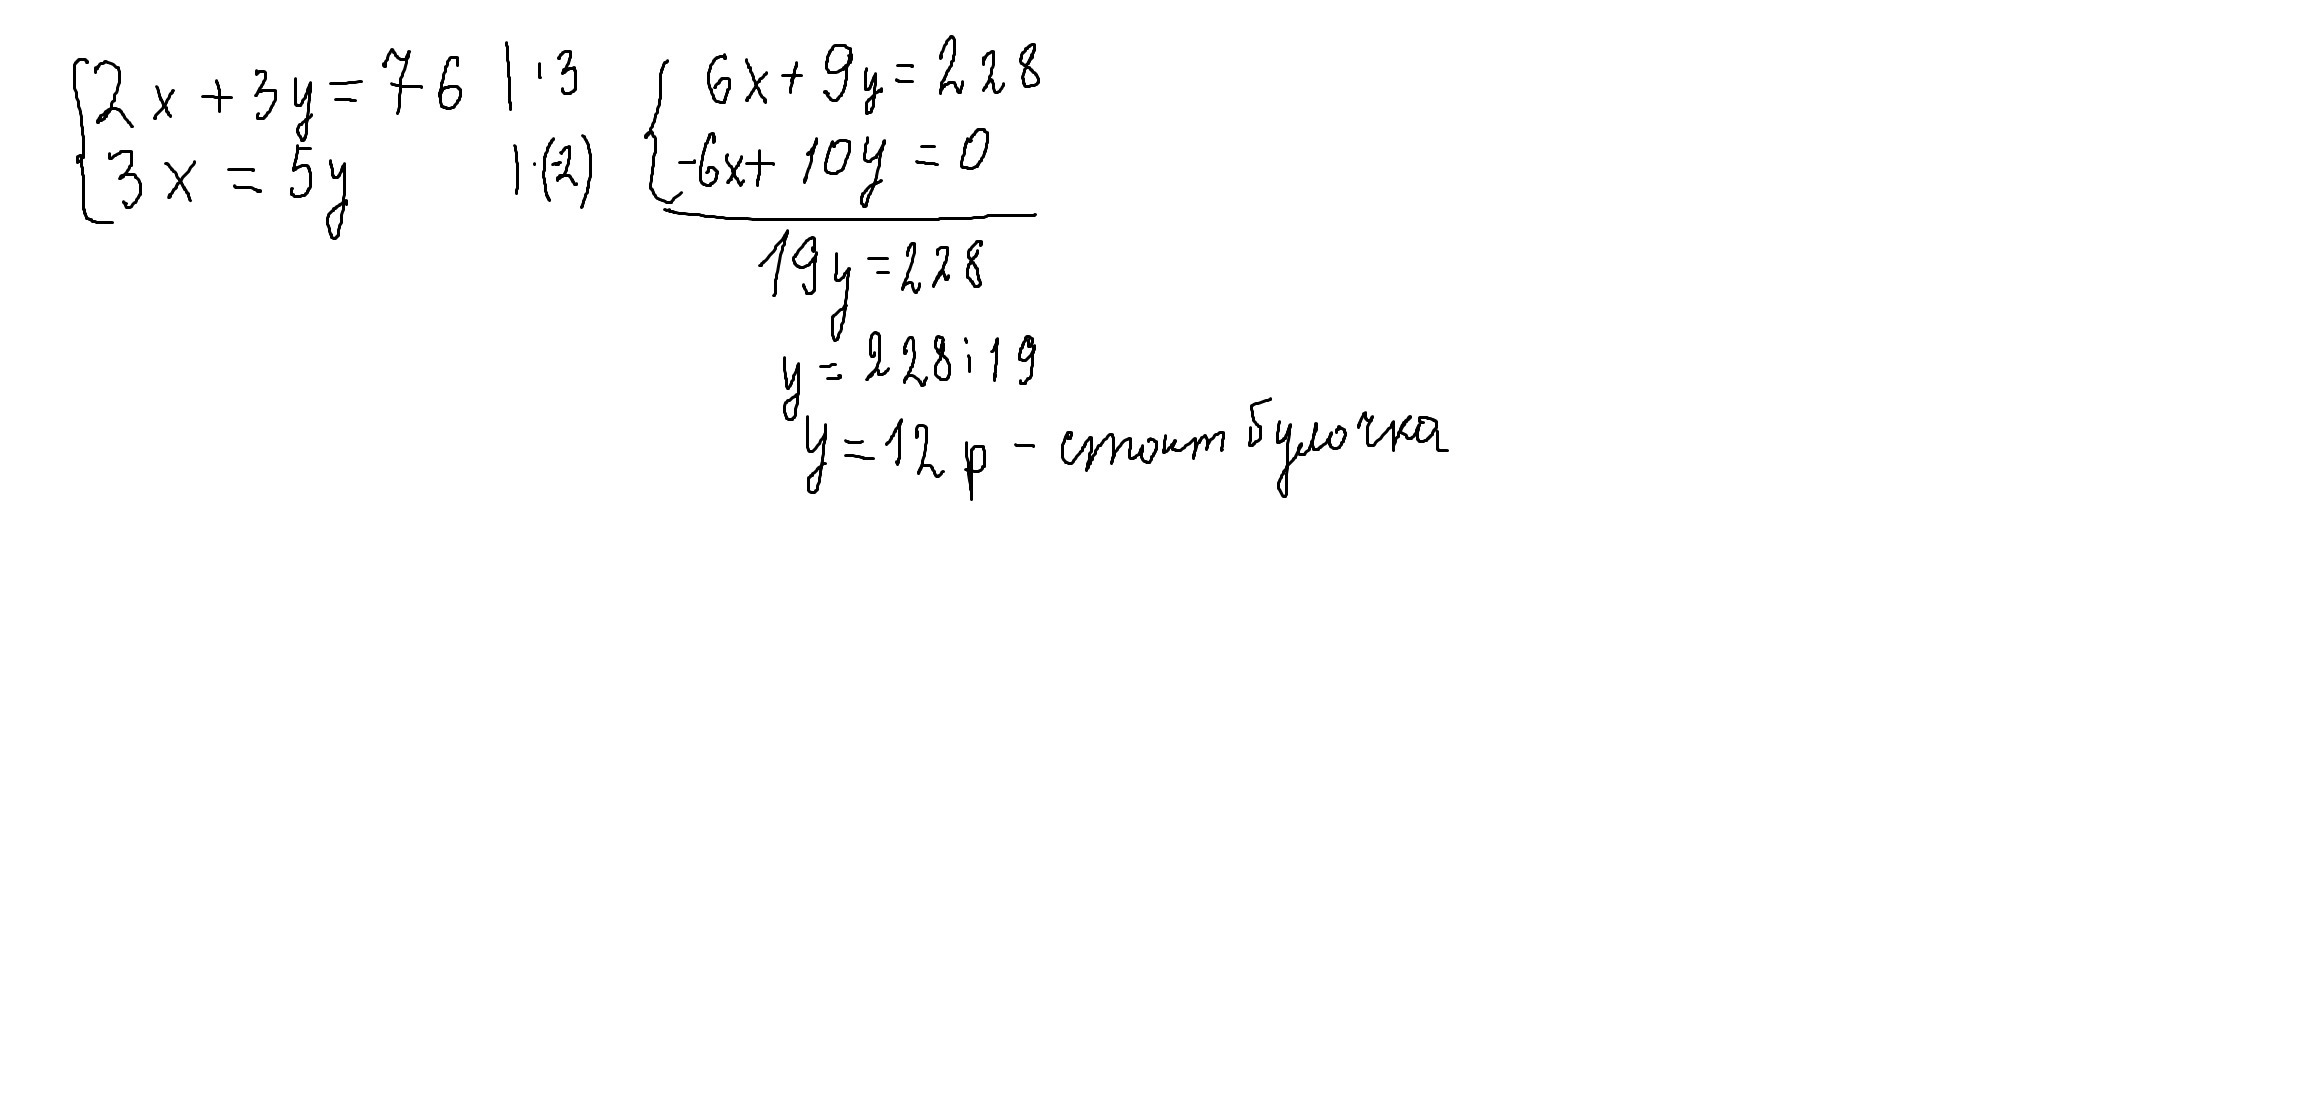 2x + 3y = 76 | · 3
3x = 5y | · (-2)
6x + 9y = 228
-6x + 10y = 0
19y = 228
y = 228 : 19
y = 12 р - стоит булочка